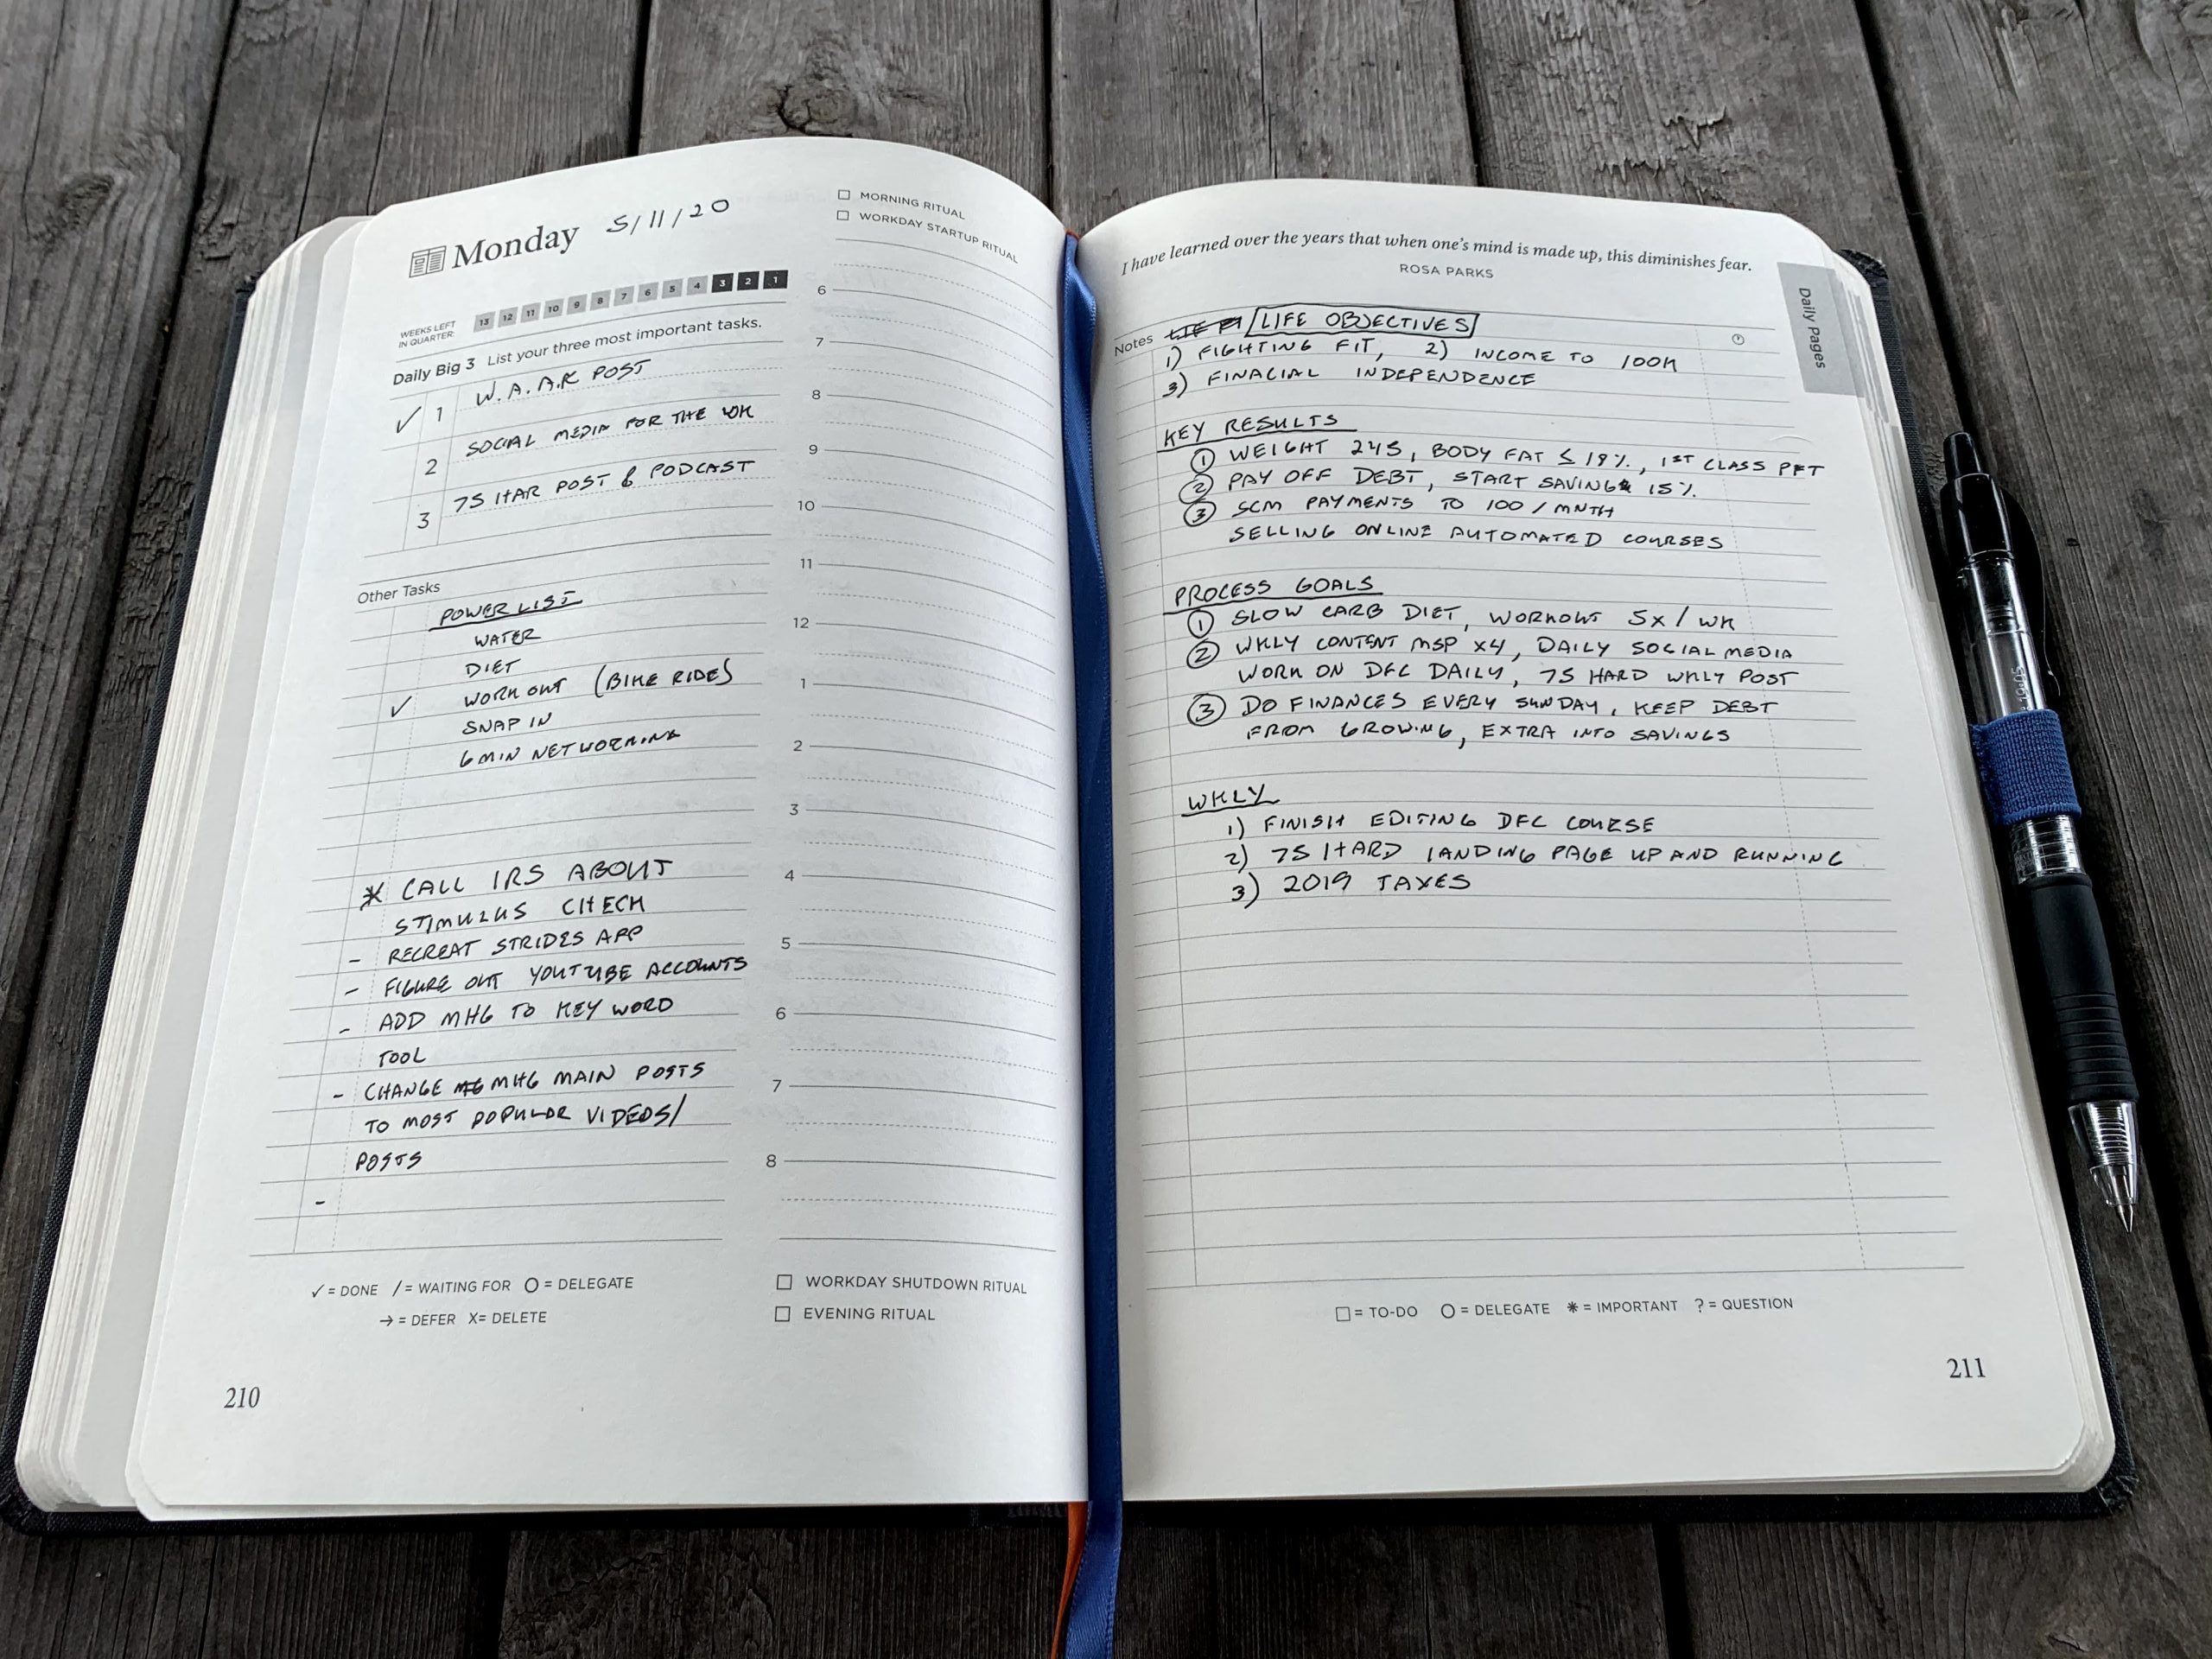 Monday 5/11/20
WEEKS LEFT
IN QUARTER:
13 12 11 10 9 8 7 6 5 4 3 2 1
Daily Big 3 List your three most important tasks.
✓ 1 W.A.A.R POST
2 SOCIAL MEDIA FOR THE WK
3 75 HAR POST & PODCAST
Other Tasks
POWER LIST
WATER
DIET
✓ WORK OUT (BIKE RIDE)
SNAP IN
6 MIN NETWORKING
* CALL IRS ABOUT
STIMULUS CHECK
- RECREAT STRIDES APP
- FIGURE OUT YOUTUBE ACCOUNTS
- ADD MHG TO KEY WORD
TOOL
- CHANGE MHG MAIN POSTS
TO MOST POPULAR VIDEOS/
POSTS
-
✓ = DONE / = WAITING FOR O = DELEGATE
→ = DEFER X= DELETE
210
MORNING RITUAL
WORKDAY STARTUP RITUAL
6
7
8
9
10
11
12
1
2
3
4
5
6
7
8
WORKDAY SHUTDOWN RITUAL
EVENING RITUAL
I have learned over the years that when one's mind is made up, this diminishes fear.
ROSA PARKS
Daily Pages
Notes LIFE OBJECTIVES
1) FIGHTING FIT, 2) INCOME TO 100K
3) FINACIAL INDEPENDENCE
KEY RESULTS
① WEIGHT 245, BODY FAT ≤ 19%, 1ST CLASS PFT
② PAY OFF DEBT, START SAVING 15%
③ SCM PAYMENTS TO 100 / MNTH
SELLING ONLINE AUTOMATED COURSES
PROCESS GOALS
① SLOW CARB DIET, WORKOUT 5X / WK
② WKLY CONTENT MSP X4, DAILY SOCIAL MEDIA
WORK ON DFC DAILY, 75 HARD WKLY POST
③ DO FINANCES EVERY SUNDAY, KEEP DEBT
FROM GROWING, EXTRA INTO SAVINGS
WKLY
1) FINISH EDITING DFC COURSE
2) 75 HARD LANDING PAGE UP AND RUNNING
3) 2019 TAXES
□ = TO-DO O = DELEGATE * = IMPORTANT ? = QUESTION
211